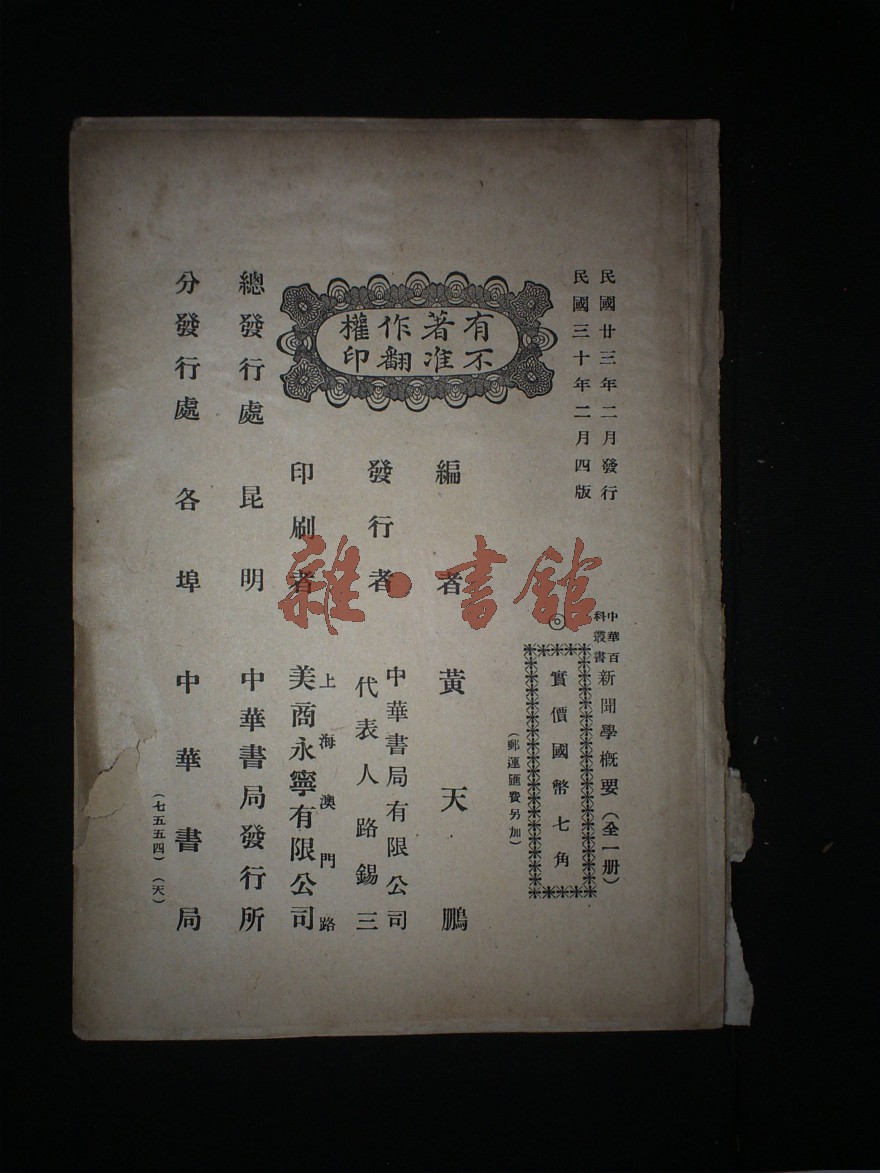 民國廿三年二月發行
民國三十年二月四版
中華百科叢書
新聞學概要（全一册）
◎
實價國幣七角
（郵運匯費另加）
有著作權
不准翻印
編者 黃天鵬
發行者 中華書局有限公司
代表人路錫三
印刷者 上海澳門路
美商永寧有限公司
總發行處 昆明 中華書局發行所
分發行處 各埠 中華書局
（七五五四）（天）
雜·書館